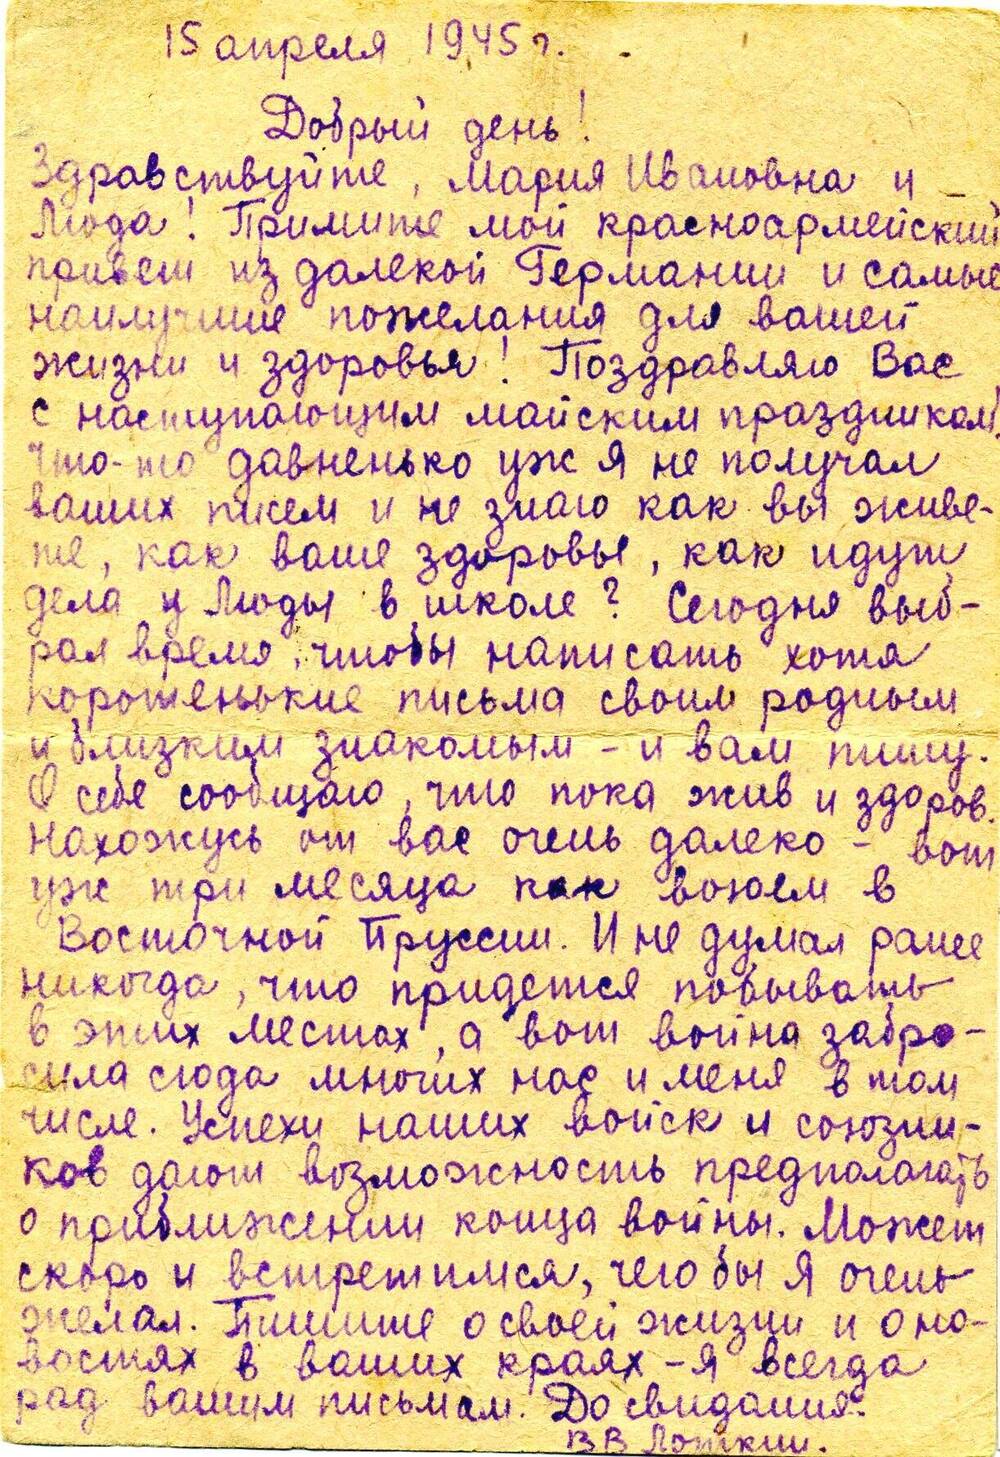 15 апреля 1945 г.
Добрый день!
Здравствуйте, Мария Ивановна и
Люда! Примите мой красноармейский
привет из далекой Германии и самые
наилучшие пожелания для вашей
жизни и здоровья! Поздравляю Вас
с наступающим майским праздником!
Что-то давненько уж я не получал
ваших писем и не знаю как вы живе-
те, как ваше здоровье, как идут
дела у Люды в школе? Сегодня выб-
рал время, чтобы написать хотя
коротенькие письма своим родным
и близким знакомым - и вам пишу.
О себе сообщаю, что пока жив и здоров.
Нахожусь от вас очень далеко - вот
уж три месяца как воюем в
Восточной Пруссии. И не думал ранее
никогда, что придется побывать
в этих местах, а вот война забро-
сила сюда многих нас и меня в том
числе. Успехи наших войск и союзни-
ков дают возможность предполагать
о приближении конца войны. Может
скоро и встретимся, чего бы я очень
желал. Пишите о своей жизни и о но-
востях в ваших краях - я всегда
рад вашим письмам. До свидания.
ВВ Лоткин.